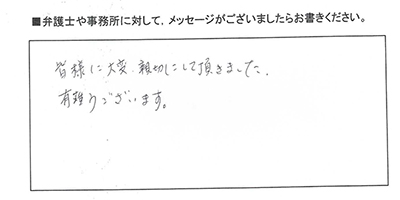 ■弁護士や事務所に対して，メッセージがございましたらお書きください。
皆様に大変、親切にして頂きました。
有難うございます。